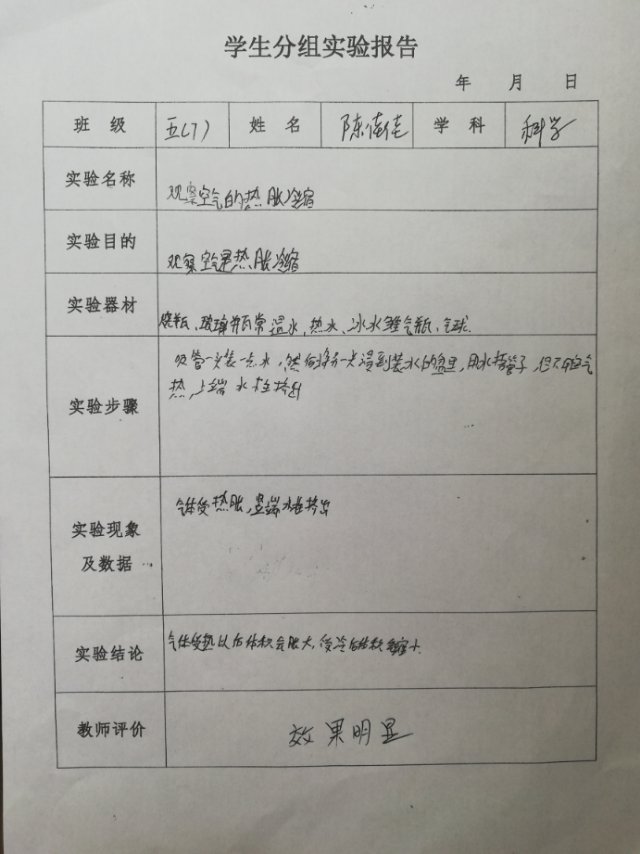 学生分组实验报告
年 月 日
班 级 五(7) 姓 名 陈倩佳 学 科 科学
实验名称 观察空气的热胀冷缩
实验目的 观察空气是热胀冷缩
实验器材 烧瓶、玻璃并瓦常温水、热水、冰水锥气瓶、气球
实验步骤 吸管一头装一点水,然后将另一头浸到装水的盆里,用水 管子,但不
热,上端水柱挤出
实验现象
及数据
气体受热胀,显端水柱挤出
实验结论 气体受热以后体积会胀大,受冷后体积缩小
教师评价 效果明显